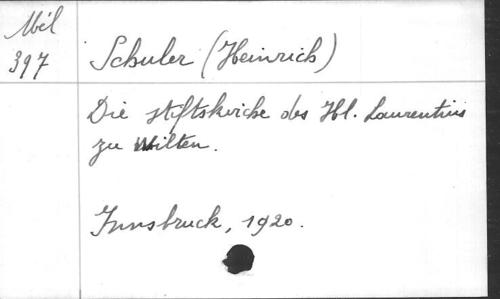 Mél
397
Schuler (Heinrich)
Die Stiftskirche des Hl. Laurentius
zu Wilten.
Innsbruck, 1920.